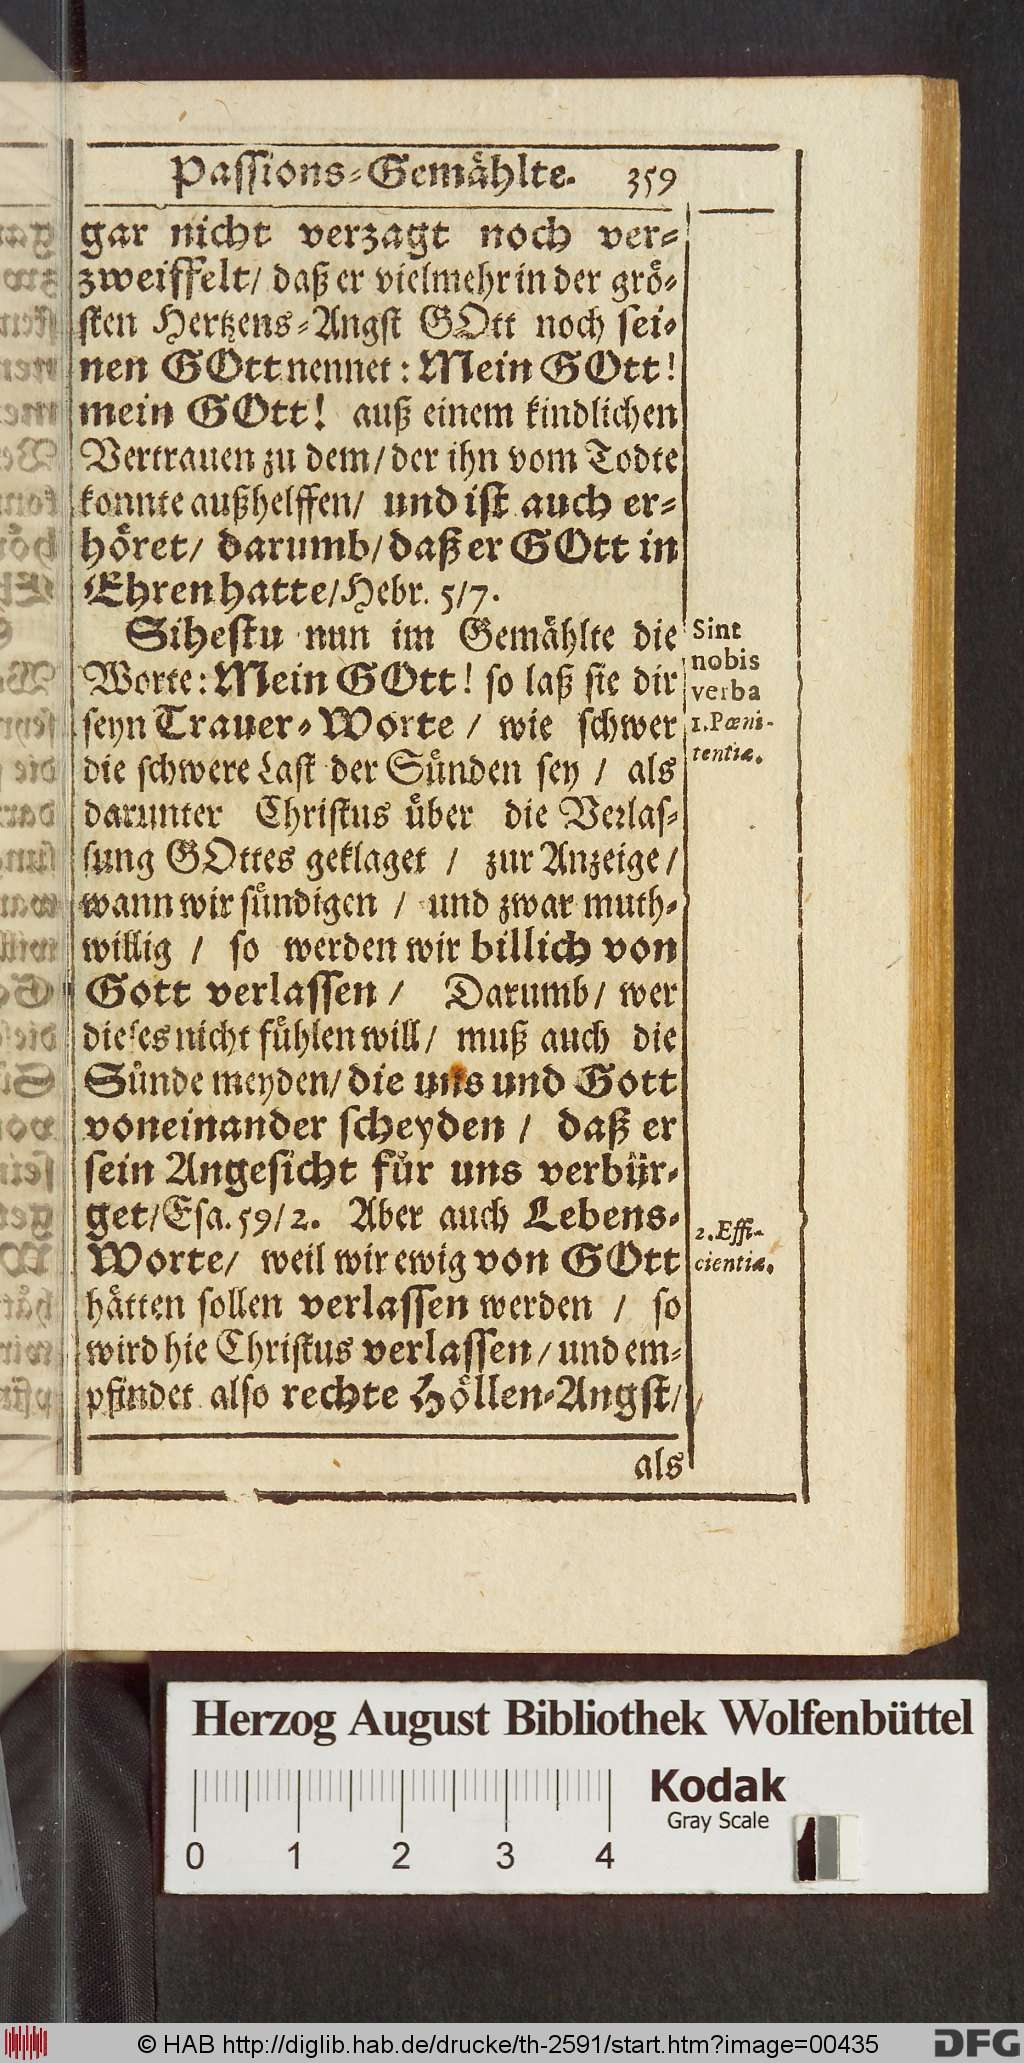 Passions-Gemählte. 359
gar nicht verzagt noch ver-
zweiffelt/ daß er vielmehr in der grö-
sten Hertzens-Angst GOtt noch sei-
nen GOtt nennet: Mein GOtt!
mein GOtt! auß einem kindlichen
Vertrauen zu dem/ der ihn vom Todte
konnte außhelffen/ und ist auch er-
höret/ darumb/ daß er GOtt in
Ehren hatte/ Hebr. 5/7.
Sihestu nun im Gemählte die
Worte: Mein GOtt! so laß sie dir
seyn Trauer-Worte / wie schwer
die schwere Last der Sünden sey / als
darunter Christus über die Verlas-
sung GOttes geklaget / zur Anzeige/
wann wir sündigen / und zwar muth-
willig / so werden wir billich von
Gott verlassen / Darumb/ wer
dieses nicht fühlen will/ muß auch die
Sünde meyden/ die uns und Gott
voneinander scheyden / daß er
sein Angesicht für uns verbür-
get/ Esa. 59/2. Aber auch Lebens-
Worte/ weil wir ewig von GOtt
hätten sollen verlassen werden / so
wird hie Christus verlassen/ und em-
pfindet also rechte Höllen-Angst/
als
Sint
nobis
verba
1. Pœni-
tentiæ.
2. Effi-
cientiæ.
Herzog August Bibliothek Wolfenbüttel
Kodak
Gray Scale
0 1 2 3 4
© HAB http://diglib.hab.de/drucke/th-2591/start.htm?image=00435
DFG